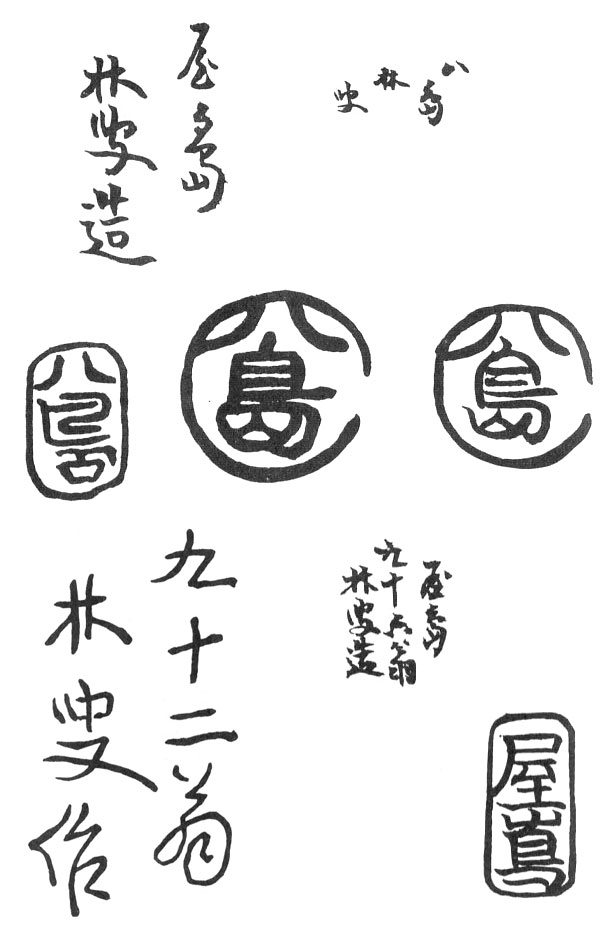 八島
林叟
屋島
林叟造
八島
八島
八
屋島
九十
翁
林叟造
九十二翁
林叟作
屋嶌